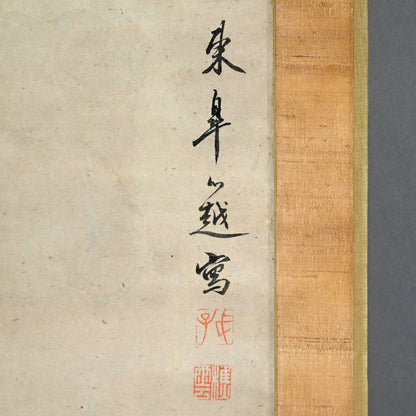 東皐心越寫